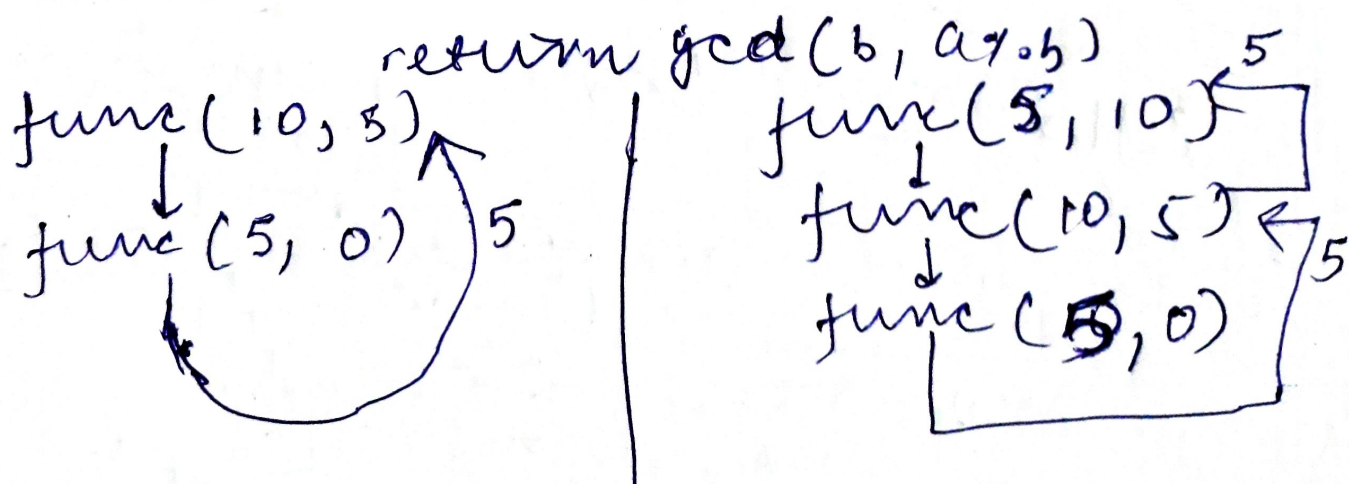 return gcd(b, a%b)
func(10, 5)
func(5, 0)
5
func(5, 10)
5
func(10, 5)
5
func(5, 0)